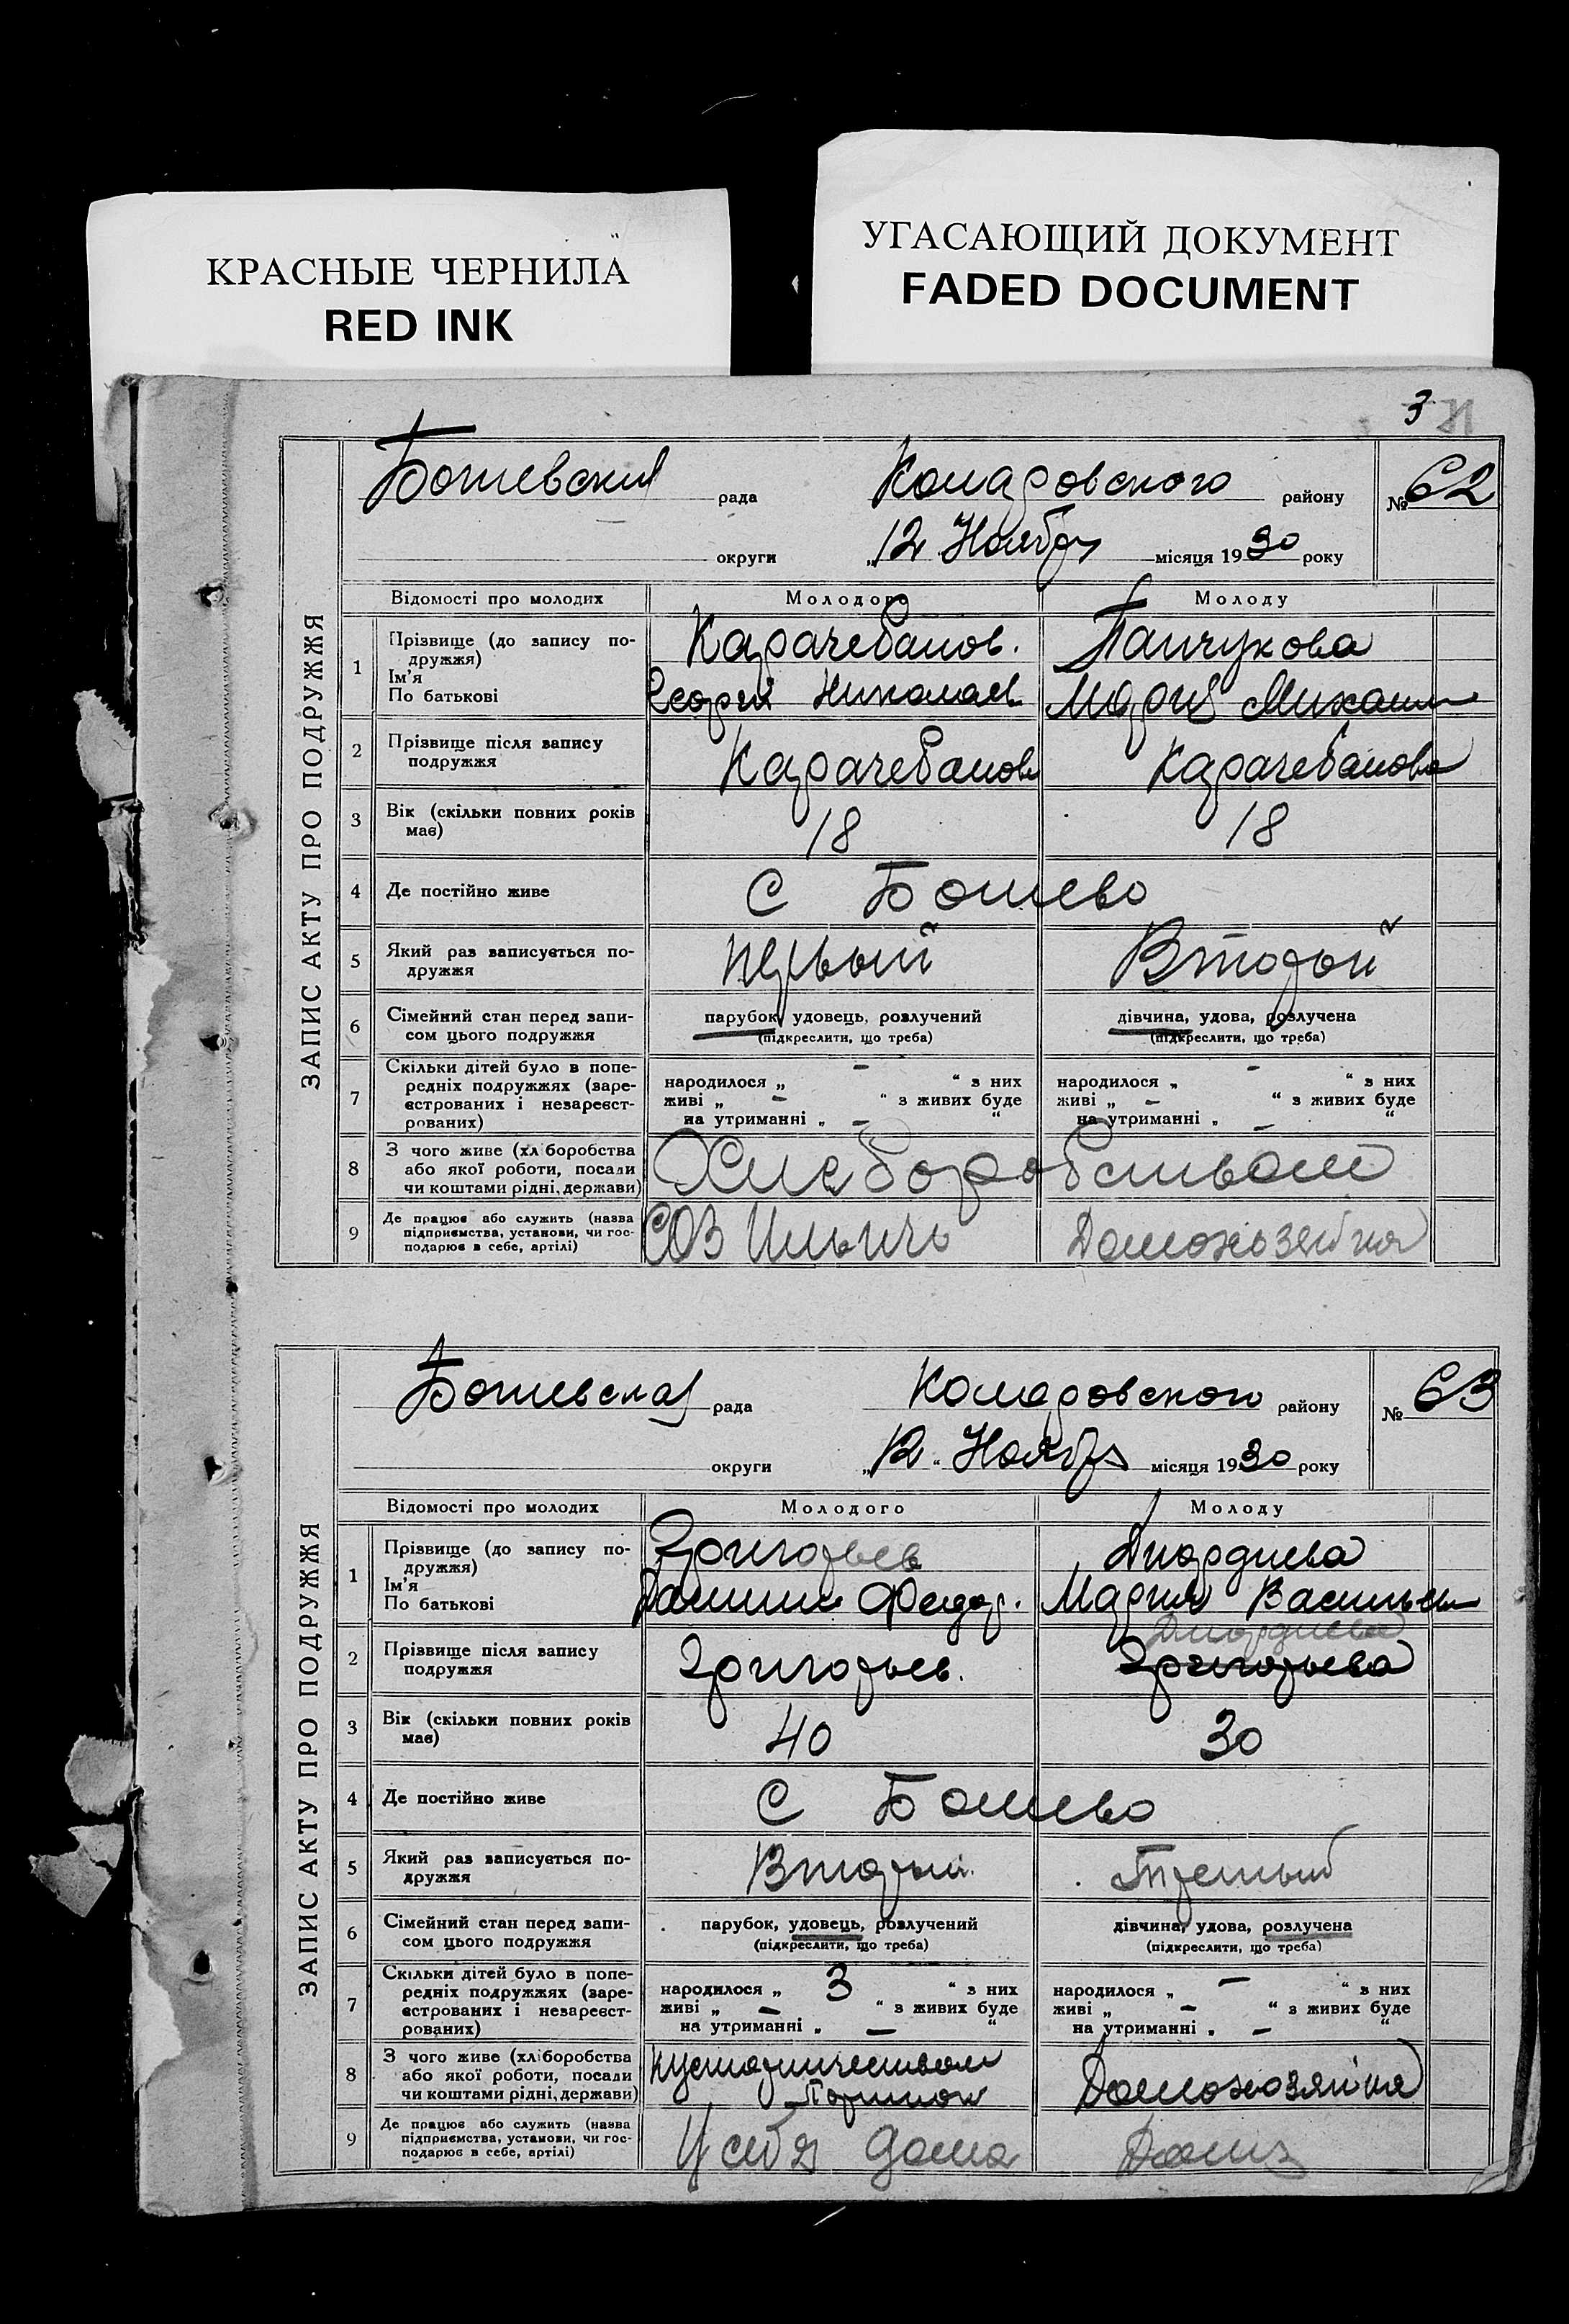 КРАСНЫЕ ЧЕРНИЛА
RED INK
УГАСАЮЩИЙ ДОКУМЕНТ
FADED DOCUMENT
3
ЗАПИС АКТУ ПРО ПОДРУЖЖЯ
рада района Комаровского району № 62
округи „12 Ноября місяця 1930 року
Відомості про молодих Молодого Молоду
1 Прізвище (до запису по-
дружжя) Карачебанов. Панчукова
Ім'я
По батькові Георгій Николаев Мария Михаил
2 Прізвище після запису
подружжя Карачебанов Карачебанова
3 Вік (скільки повних років
має) 18 18
4 Де постійно живе С Бошево
5 Який раз записується по-
дружжя первый Второй
6 Сімейний стан перед запи-
сом цього подружжя
парубок, удовець, розлучений
(підкреслити, що треба)
дівчина, удова, розлучена
(підкреслити, що треба)
7 Скільки дітей було в попе-
редніх подружжях (заре-
єстрованих і незареєст-
рованих)
народилося „ - “ з них
живі „ - “ з живих буде
на утриманні „ - “
народилося „ - “ з них
живі „ - “ з живих буде
на утриманні „ - “
8 З чого живе (хліборобства
або якої роботи, посади
чи коштами рідні, держави)
Хлеборобством
9 Де працює або служить (назва
підприємства, установи, чи гос-
подарює в себе, артілі)
СОЗ Ильичь Домохозяйка
ЗАПИС АКТУ ПРО ПОДРУЖЖЯ
рада Комаровского району № 63
округи „12“ Ноября місяця 1930 року
Відомості про молодих Молодого Молоду
1 Прізвище (до запису по-
дружжя) Григорьев
Ім'я
По батькові Федор. Мария Васильев
2 Прізвище після запису
подружжя Григорьев. Григорьева
3 Вік (скільки повних років
має) 40 30
4 Де постійно живе С Бошево
5 Який раз записується по-
дружжя Второй. Третьий
6 Сімейний стан перед запи-
сом цього подружжя
парубок, удовець, розлучений
(підкреслити, що треба)
дівчина, удова, розлучена
(підкреслити, що треба)
7 Скільки дітей було в попе-
редніх подружжях (заре-
єстрованих і незареєст-
рованих)
народилося „ 3 “ з них
живі „ - “ з живих буде
на утриманні „ - “
народилося „ - “ з них
живі „ - “ з живих буде
на утриманні „ - “
8 З чого живе (хліборобства
або якої роботи, посади
чи коштами рідні, держави)
кустарничеством Домохозяйка
9 Де працює або служить (назва
підприємства, установи, чи гос-
подарює в себе, артілі)
У себя дома Дома